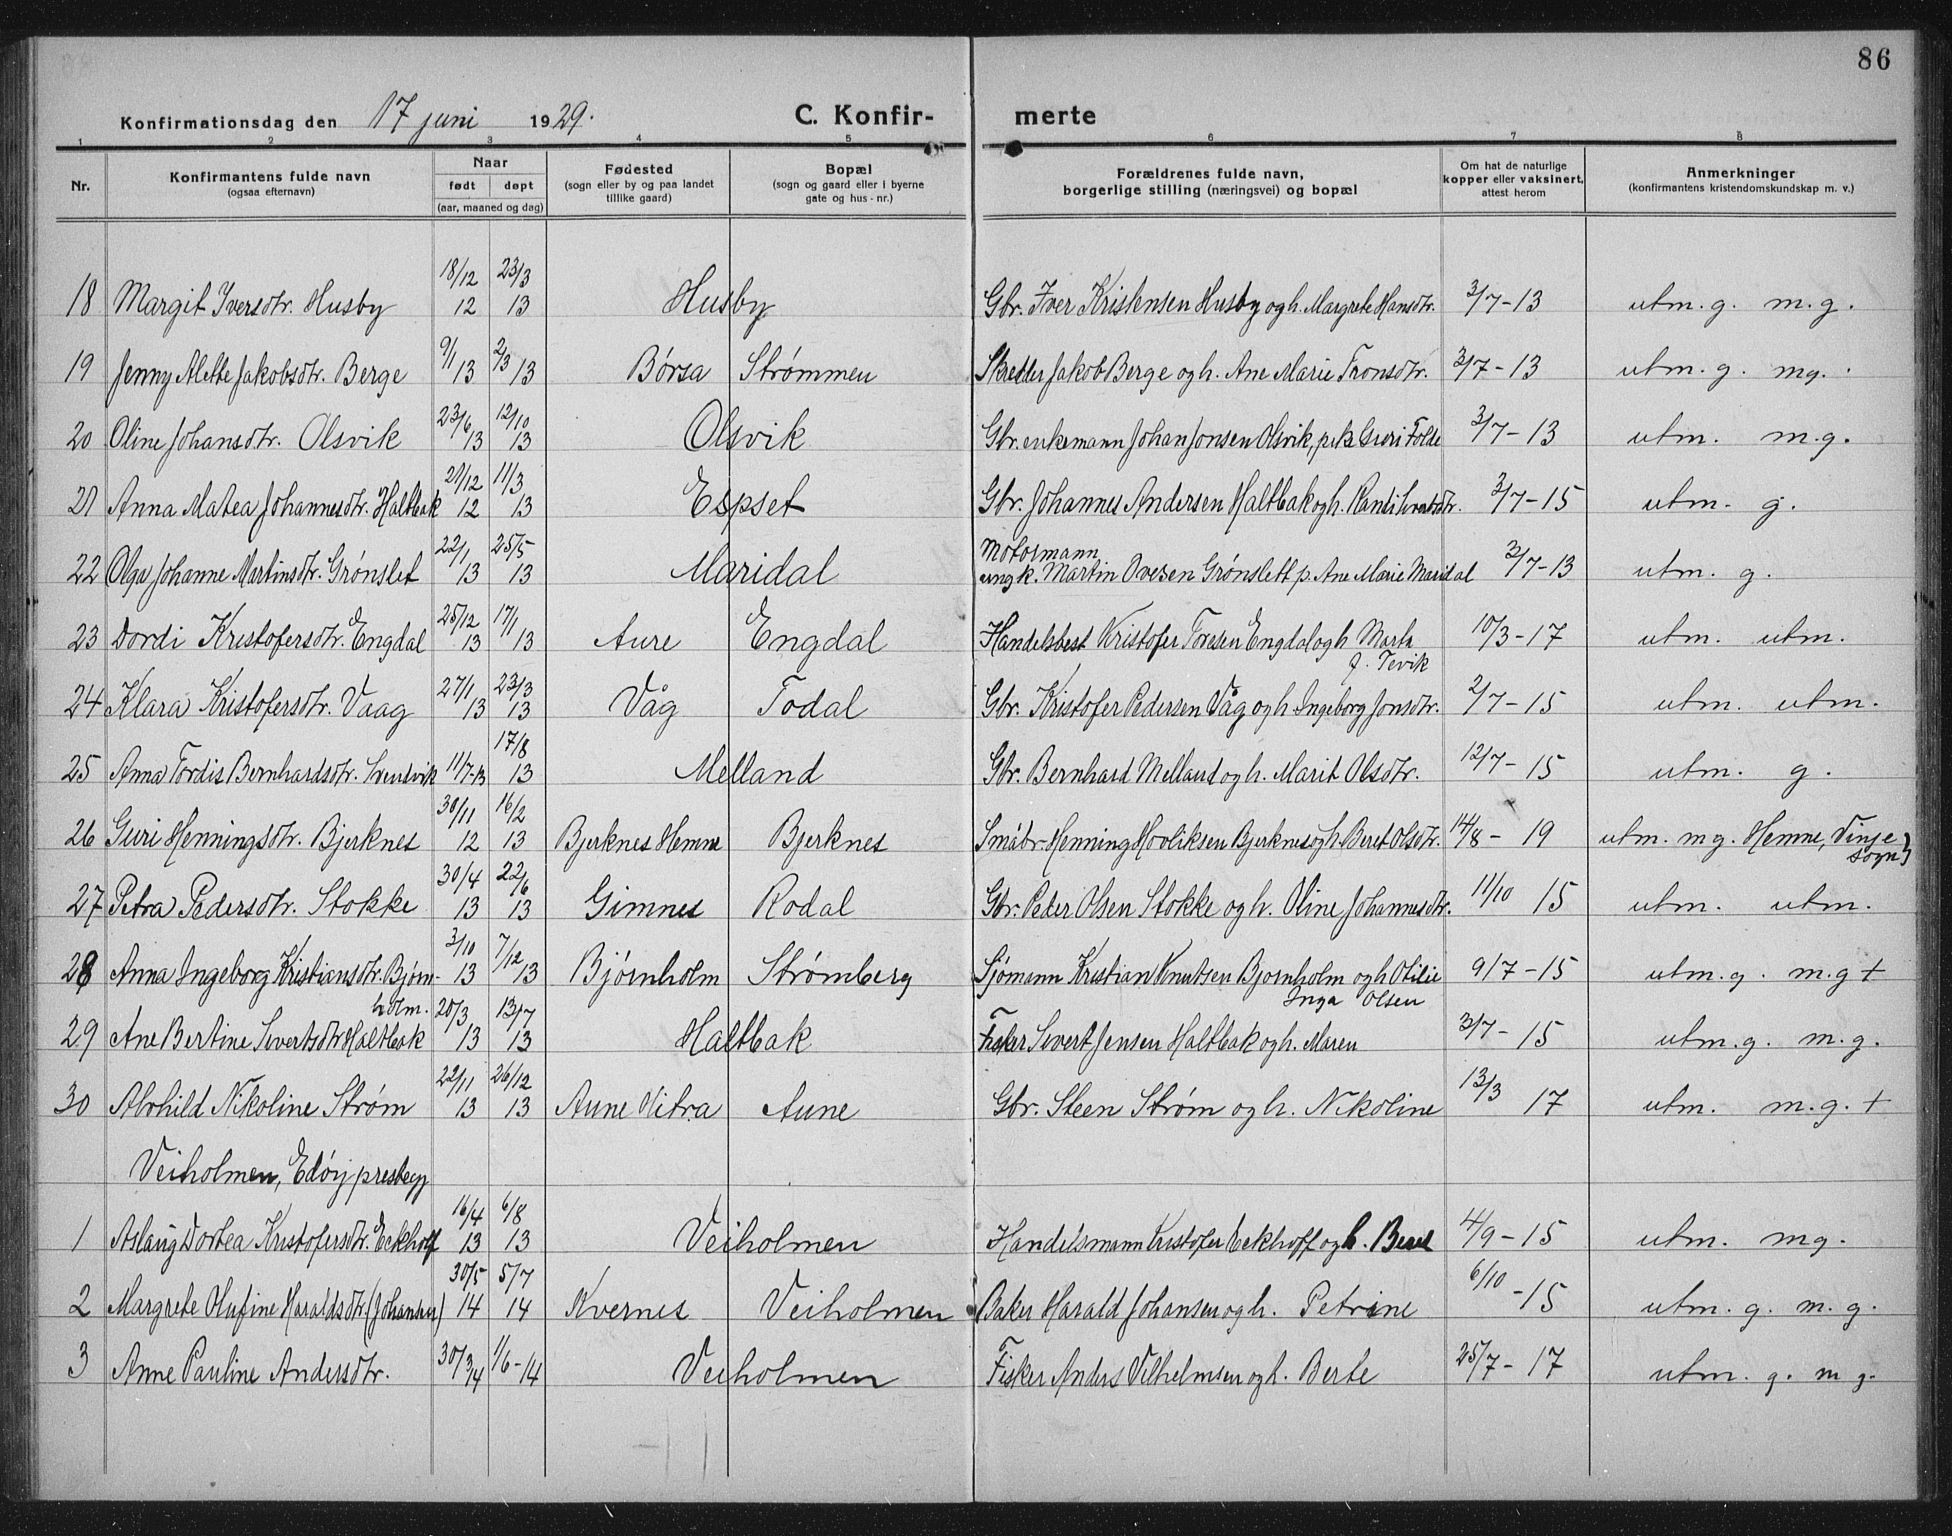 86
Konfirmationsdag den 17 juni 1929.
C. Konfir- merte
1 2 3 4 5 6 7 8
Nr.
Konfirmantens fulde navn
(ogsaa efternavn)
Naar
født døpt
(aar, maaned og dag)
Fødested
(sogn eller by og paa landet
tillike gaard)
Bopæl
(sogn og gaard eller i byerne
gate og hus-nr.)
Forældrenes fulde navn,
borgerlige stilling (næringsvei) og bopæl
Om hat de naturlige
kopper eller vaksinert,
attest herom
Anmerkninger
(konfirmantens kristendomskundskap m. v.)
18 Margit Iversdtr. Husby 18/12 12 23/3 13 Husby Gbr. Iver Kristensen Husby og h. Margrete Hansdtr. 3/7-13 utm. g. m. g.
19 Jenny Alette Jakobsdtr. Berge 9/1 13 2/3 13 Børsa Strømmen Skredder Jakob Berge og h. Ane Marie Tronsdtr. 3/7-13 utm. g. mg.
20 Oline Johansdtr. Olsvik 23/6 13 12/10 13 Olsvik Gbr. enkemann Johan Jonsen Olsvik, Guri Folde 3/7-13 utm. m.g.
21 Anna Matea Johannesdtr. Haltbak 21/12 12 11/3 13 Espset Gbr. Johannes Andersen Haltbak og h. 3/7-15 utm. g.
22 Olga Johanne Martinsdtr. Grønslet 22/1 13 25/5 13 Maridal Motormann
ungk. Martin Ovesen Grønslett p. Ane Marie Maridal 3/7-13 utm. g.
23 Dordi Kristofersdtr. Engdal 25/12 13 17/1 13 Aure Engdal Handelsbest Kristofer Toresen Engdal og h. Marta
f. Tevik 10/3-17 utm. utm.
24 Klara Kristofersdtr. Vaag 27/1 13 23/3 13 Våg Todal Gbr. Kristofer Pedersen Våg og h. Ingeborg Jonsdtr. 2/7-15 utm. utm.
25 Anna Tordis Bernhardsdtr. 11/7-13 17/8 13 Melland Gbr. Bernhard Melland og h. Marit Olsdtr. 12/7-15 utm. g.
26 Guri Henningsdtr. Bjerknes 30/11 12 16/2 13 Bjerknes Hemne Bjerknes Småbr. Henning Bjerknes og h. Beret Olsdtr. 14/8-19 utm. mg. Hemne, Vinje
sogn}
27 Petra Pedersdtr. Stokke 30/4 13 22/6 13 Gimnes Rodal Gbr. Peder Olsen Stokke og h. Oline Johannesdtr. 11/10 15 utm. utm.
28 Anna Ingeborg Kristiansdtr. Bjørn-
holm. 3/10 13 7/12 13 Bjørnholm Strømberg Sjømann Kristian Knutsen Bjørnholm og h. Otilie
Inga Olsen 9/7-15 utm.g. m.g +
29 Ane Bertine Sivertsdtr Haltbak 20/3 13 13/7 13 Haltbak Fisker Sivert Jensen Haltbak og h. Maren 3/7-15 utm.g. m.g.
30 Alvhild Nikoline Strøm 22/11 13 26/12 13 Aune Hitra Aune Gbr. Steen Strøm og h. Nikoline 13/3 17 utm. m.g. +
Veiholmen, Edøy prestegj
1 Aslaug Dortea Kristofersdtr. Eckhoff 16/4 13 6/8 13 Veiholmen Handelsmann Kristofer Eckhoff og h. Beret 4/9-15 utm. mg.
2 Margrete Olufine Haraldsdtr (Johansen) 30/5 14 5/7 14 Kvernes Veiholmen Baker Harald Johansen og h. Petrine 6/10-15 utm. g. m. g.
3 Anne Pauline Andersdtr. 30/3 14 1/6-14 Veiholmen Fisker Anders Vilhelmsen og h. Berte 25/7-17 utm. g. m g.